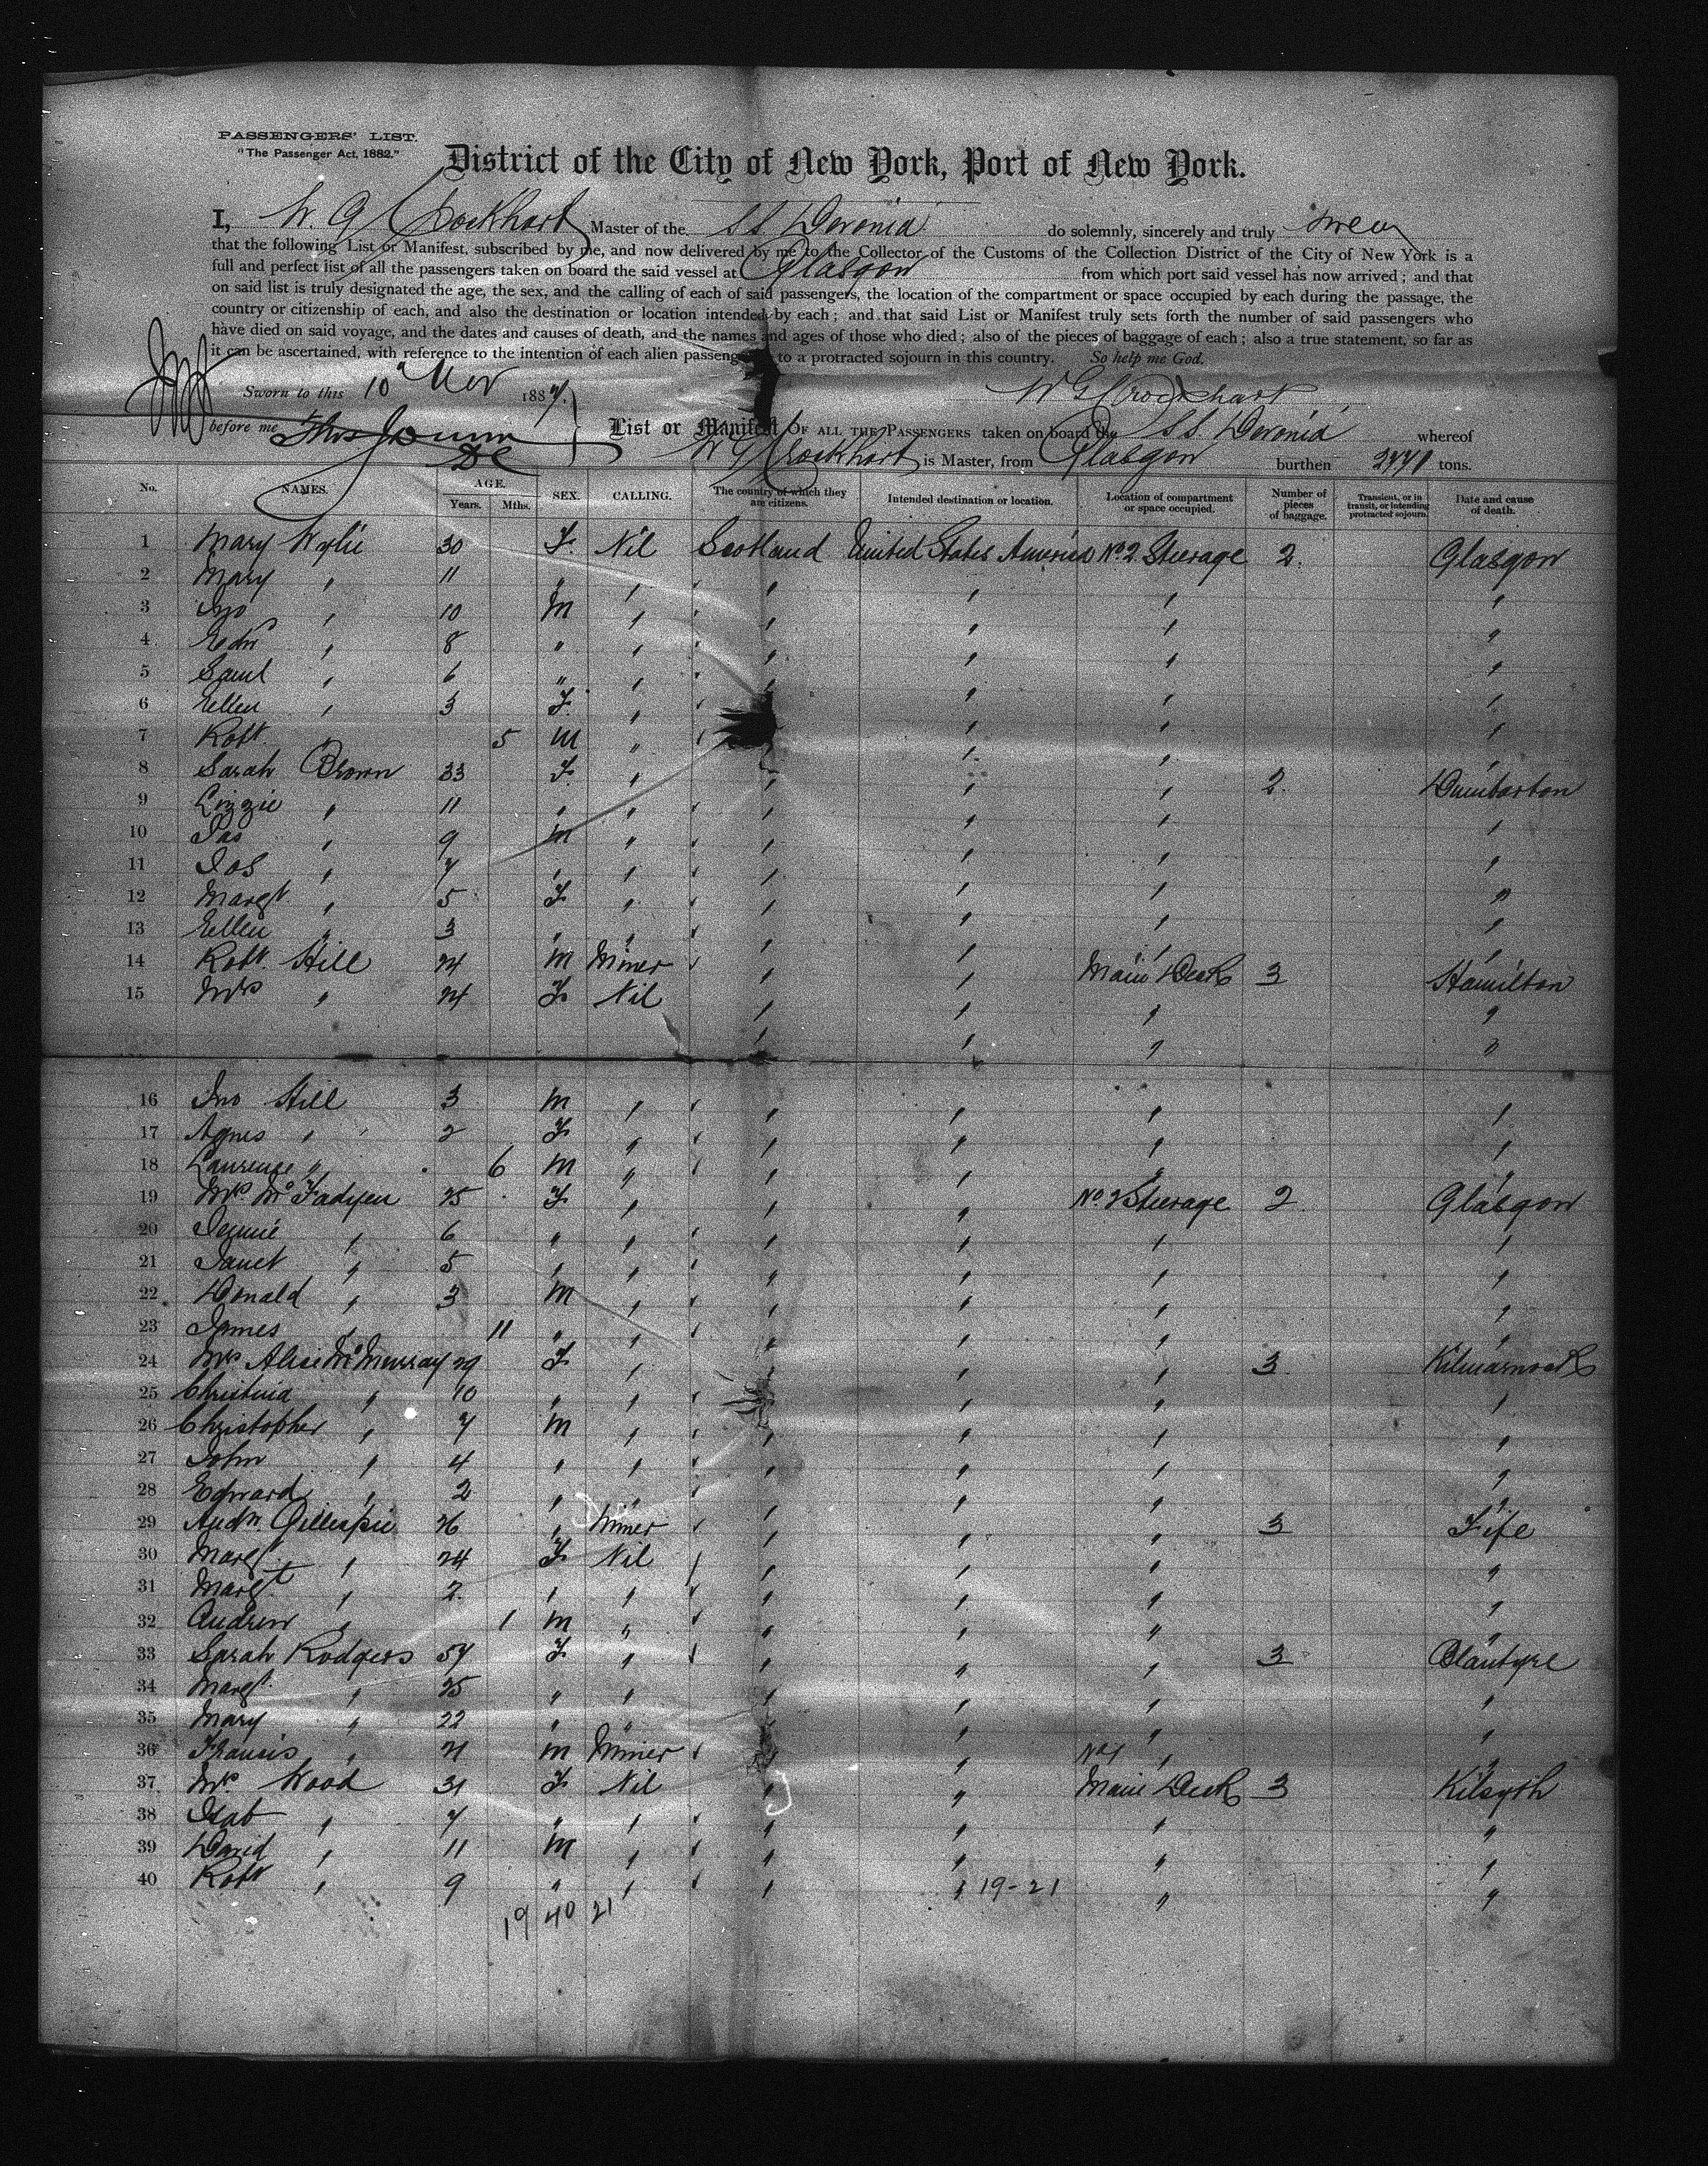 PASSENGERS' LIST.
"The Passenger Act, 1882."
District of the City of New York, Port of New York.
I, W. G. Crockhart Master of the SS Devonia do solemnly, sincerely and truly swear
that the following List or Manifest, subscribed by me, and now delivered by me to the Collector of the Customs of the Collection District of the City of New York is a
full and perfect list of all the passengers taken on board the said vessel at Glasgow from which port said vessel has now arrived; and that
on said list is truly designated the age, the sex, and the calling of each of said passengers, the location of the compartment or space occupied by each during the passage, the
country or citizenship of each, and also the destination or location intended by each; and that said List or Manifest truly sets forth the number of said passengers who
have died on said voyage, and the dates and causes of death, and the names and ages of those who died; also of the pieces of baggage of each; also a true statement, so far as
it can be ascertained, with reference to the intention of each alien passenger to a protracted sojourn in this country. So help me God.
Sworn to this 10 Nov 1887. W G Crockhart
before me
List or Manifest OF ALL THE PASSENGERS taken on board the SS. Devonia whereof
W G Crockhart is Master, from Glasgow burthen 2771 tons.
No. NAMES. AGE. Years. Mths. SEX. CALLING. The country of which they are citizens. Intended destination or location. Location of compartment or space occupied. Number of pieces of baggage. Transient, or in transit, or intending protracted sojourn. Date and cause of death.
1 Mary Wylie 30 F. Nil Scotland United States America No 2 Steerage 2. Glasgow
2 Mary " 11 " " " " " "
3 Jno " 10 M " " " " "
4 Edw " 8 " " " " " "
5 Saml " 6 " " " " " "
6 Ellen " 3 F. " " " " "
7 Robt " 5 M " " " " "
8 Sarah Brown 33 F. " " " " 2. Dumbarton
9 Lizzie " 11 " " " " " "
10 Jas " 9 M " " " " "
11 Jos " 7 " " " " " "
12 Margt " 5 F " " " " "
13 Ellen " 3 " " " " " "
14 Robt. Hill 24 M Miner " " Main Deck 3 Hamilton
15 Mrs " 24 F Nil " " " "
16 Jno Hill 3 M " " " " "
17 Agnes " 2 F " " " " "
18 Laurence " 6 M " " " " "
19 Mrs McFadyen 25 F " " " No. 2 Steerage 2. Glasgow
20 Jennie " 6 " " " " " "
21 Janet " 5 " " " " " "
22 Donald " 3 M " " " " "
23 James " 11 " " " " " "
24 Mrs Alice McMurray 29 F " " " " 3 Kilmarnock
25 Christina " 10 " " " " " "
26 Christopher " 7 M " " " " "
27 John " 4 " " " " " "
28 Edward " 2 " " " " " "
29 Andw. Gillespie 26 " Miner " " " 3 Fife
30 Margt " 24 F Nil " " " "
31 Margt " 2. " " " " " "
32 Andrew " 1 M " " " " "
33 Sarah Rodgers 57 F " " " " 3 Blantyre
34 Margt. " 25 " " " " " "
35 Mary " 22 " " " " " "
36 Francis " 21 M Miner " " No 1 " "
37 Mrs. Wood 31 F Nil " " Main Deck 3 Kilsyth
38 Isab " 7 " " " " " "
39 David " 11 M " " " " "
40 Robt " 9 " " " " " "
19-21
19 40 21